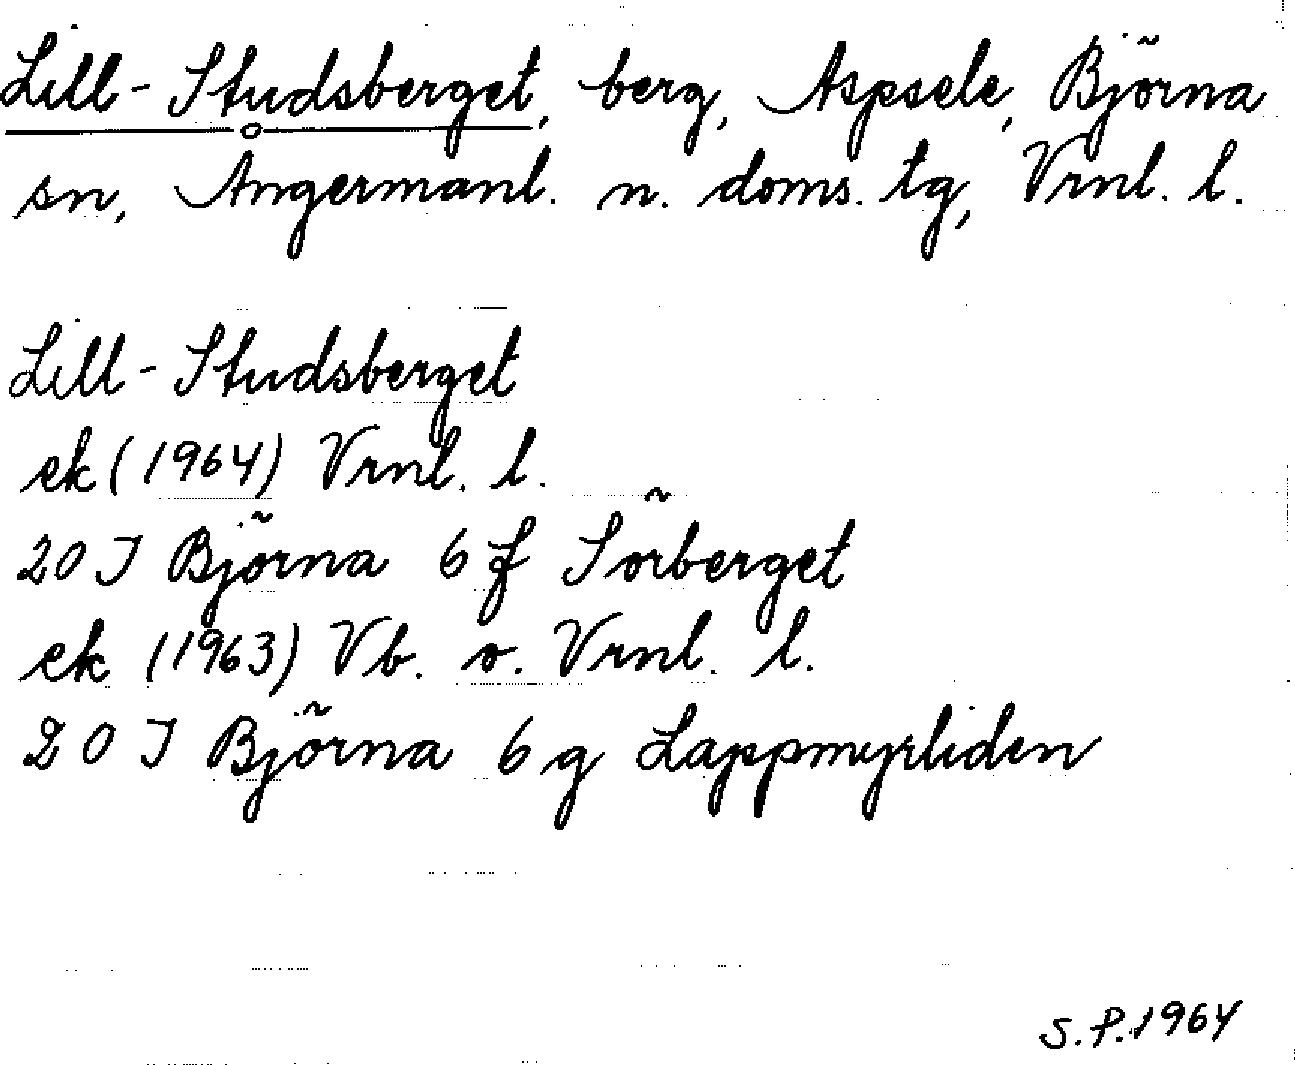 Lill-Studsberget, berg, Aspsele, Björna
sn, Ångermanl. n. doms. tg, Vrnl. l.
Lill-Studsberget
ek (1964) Vrnl. l.
20 I Björna 6 f Sörberget
ek (1963) Vb. o. Vrnl. l.
20 I Björna 6 g Lappmyrliden
S.P. 1964